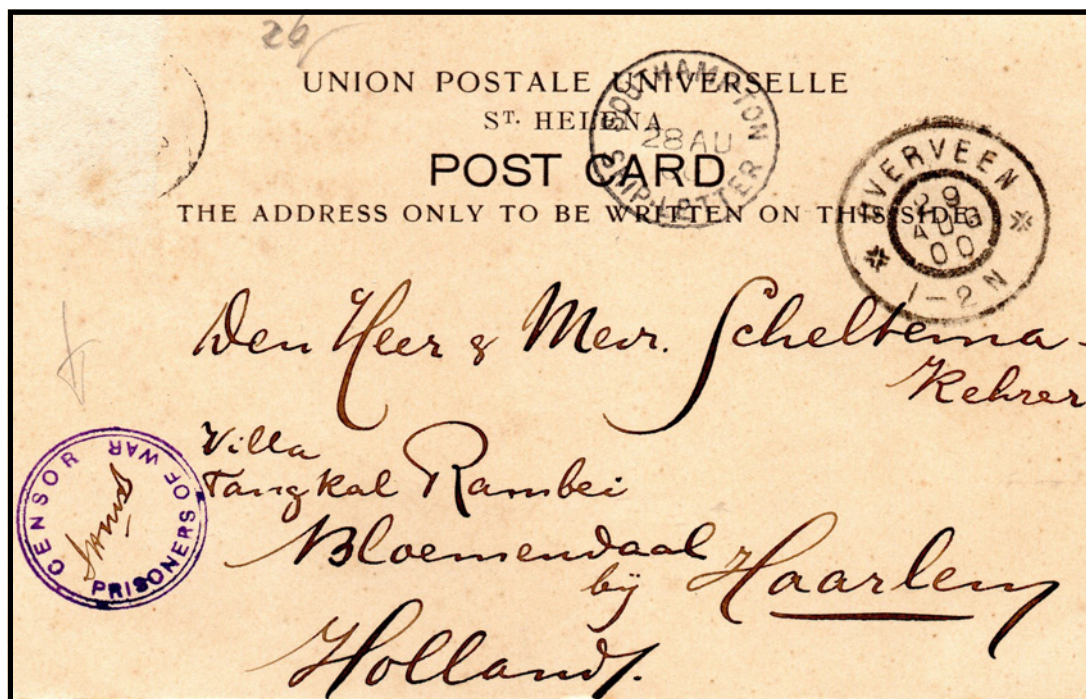 26
UNION POSTALE UNIVERSELLE
ST. HELENA
POST CARD
THE ADDRESS ONLY TO BE WRITTEN ON THIS SIDE.
SOUTHAMPTON
28 AU
SHIP-LETTER
OVERVEEN
29
AUG
00
1-2 N
Den Heer & Mevr. Scheltema-
Kehrer
Villa
Tangkal Rambei
Bloemendaal
bij Haarlem
Holland.
CENSOR
PRISONERS OF WAR